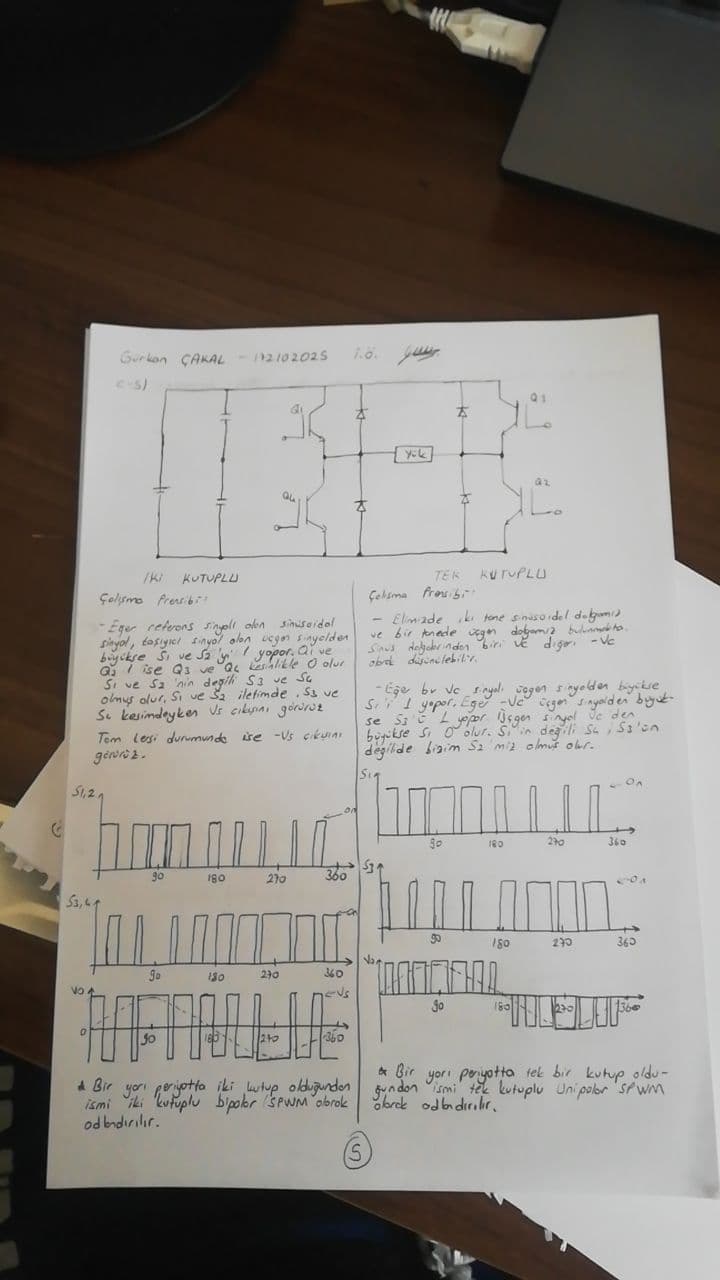 Gürkan ÇAKAL - 172102025 İ.Ö.
C-5)
Q1
Q3
Yük
Q4
Q2
İKİ KUTUPLU
Çalışma Prensibi:
- Eğer referans sinyali olan sinüsoidal
sinyal, taşıyıcı sinyal olan üçgen sinyalden
büyükse S1 ve S2'yi 1 yapar. Q1 ve
Q2 1 ise Q3 ve Q4 kesinlikle 0 olur
S1 ve S2'nin değili S3 ve S4
olmuş olur. S1 ve S2 iletimde, S3 ve
S4 kesimdeyken Vs çıkışını görürüz
Tam tersi durumunda ise -Vs çıkışını
görürüz.
S1,2
on
90 180 270 360
S3,4
on
90 180 270 360
Vo
Vs
0 90 180 270 360
* Bir yarı periyotta iki kutup olduğundan
ismi iki kutuplu bipolar SPWM olarak
adlandırılır.
TEK KUTUPLU
Çalışma Prensibi:
- Elimizde iki tane sinüsoidal dalgamız
ve bir tanede üçgen dalgamız bulunmakta.
Sinüs dalgalarından biri Vc diğeri -Vc
olarak düşünülebilir.
- Eğer bu Vc sinyali üçgen sinyalden büyükse
S1'i 1 yapar. Eğer -Vc üçgen sinyalden büyük-
se S3'ü 1 yapar. Üçgen sinyal Vc den
büyükse S1 0 olur. S1'in değili S4, S3'ün
değilide bizim S2'miz olmuş olur.
S1
On
90 180 270 360
S3
On
90 180 270 360
Vo
90 180 270 360
* Bir yarı periyotta tek bir kutup oldu-
ğundan ismi tek kutuplu Unipolar SPWM
olarak adlandırılır.
5